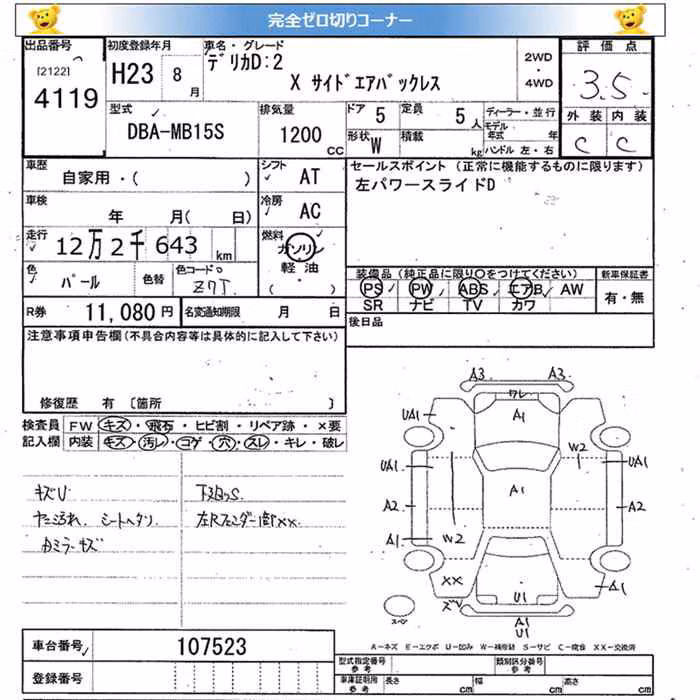 完全ゼロ切りコーナー
出品番号
[2122]
4119
初度登録年月
H23 8月
車名・グレード
デリカD:2
X サイドエアバックレス
2WD
・
4WD
評価点
3.5
外装 内装
C C
型式
DBA-MB15S
排気量
1200 CC
ドア 5
定員 5人
形状 W
積載 kg
ディーラー・並行
モデル年式 年
ハンドル 左・右
車歴
自家用・( )
シフト AT
冷房 AC
セールスポイント (正常に機能するものに限ります)
左パワースライドD
車検
年 月( 日)
走行
12万2千643 km
燃料
ガソリン
軽油
( )
色
パール
色替
色コードNo
Z7T
装備品 (純正品に限り○をつけてください)
PS PW ABS エアB AW
SR ナビ TV カワ
新車保証書
有・無
R券 11,080円
名変通知期限 月 日
後日品
注意事項申告欄(不具合内容等は具体的に記入して下さい)
修復歴 有 〔箇所 〕
検査員
記入欄
FW キズ・飛石・ヒビ割・リペア跡・×要
内装 キズ・汚レ・コゲ・穴・スレ・キレ・破レ
キズU
シートヘタリ
カミラーキズ
下廻りS
A3 A3
ワレ
A1
UA1
W2
UA1
UA1
A1
A2
A2
W2
A1
XX
A1
U1
A1
U1
スペア
A-キズ E-エクボ U-凹み W-補修跡 S-サビ C-腐食 XX-交換済
車台番号 107523
登録番号
型式指定番号
参考
類別区分番号
参考
車庫証明用
参考
長さ cm
幅 cm
高さ cm